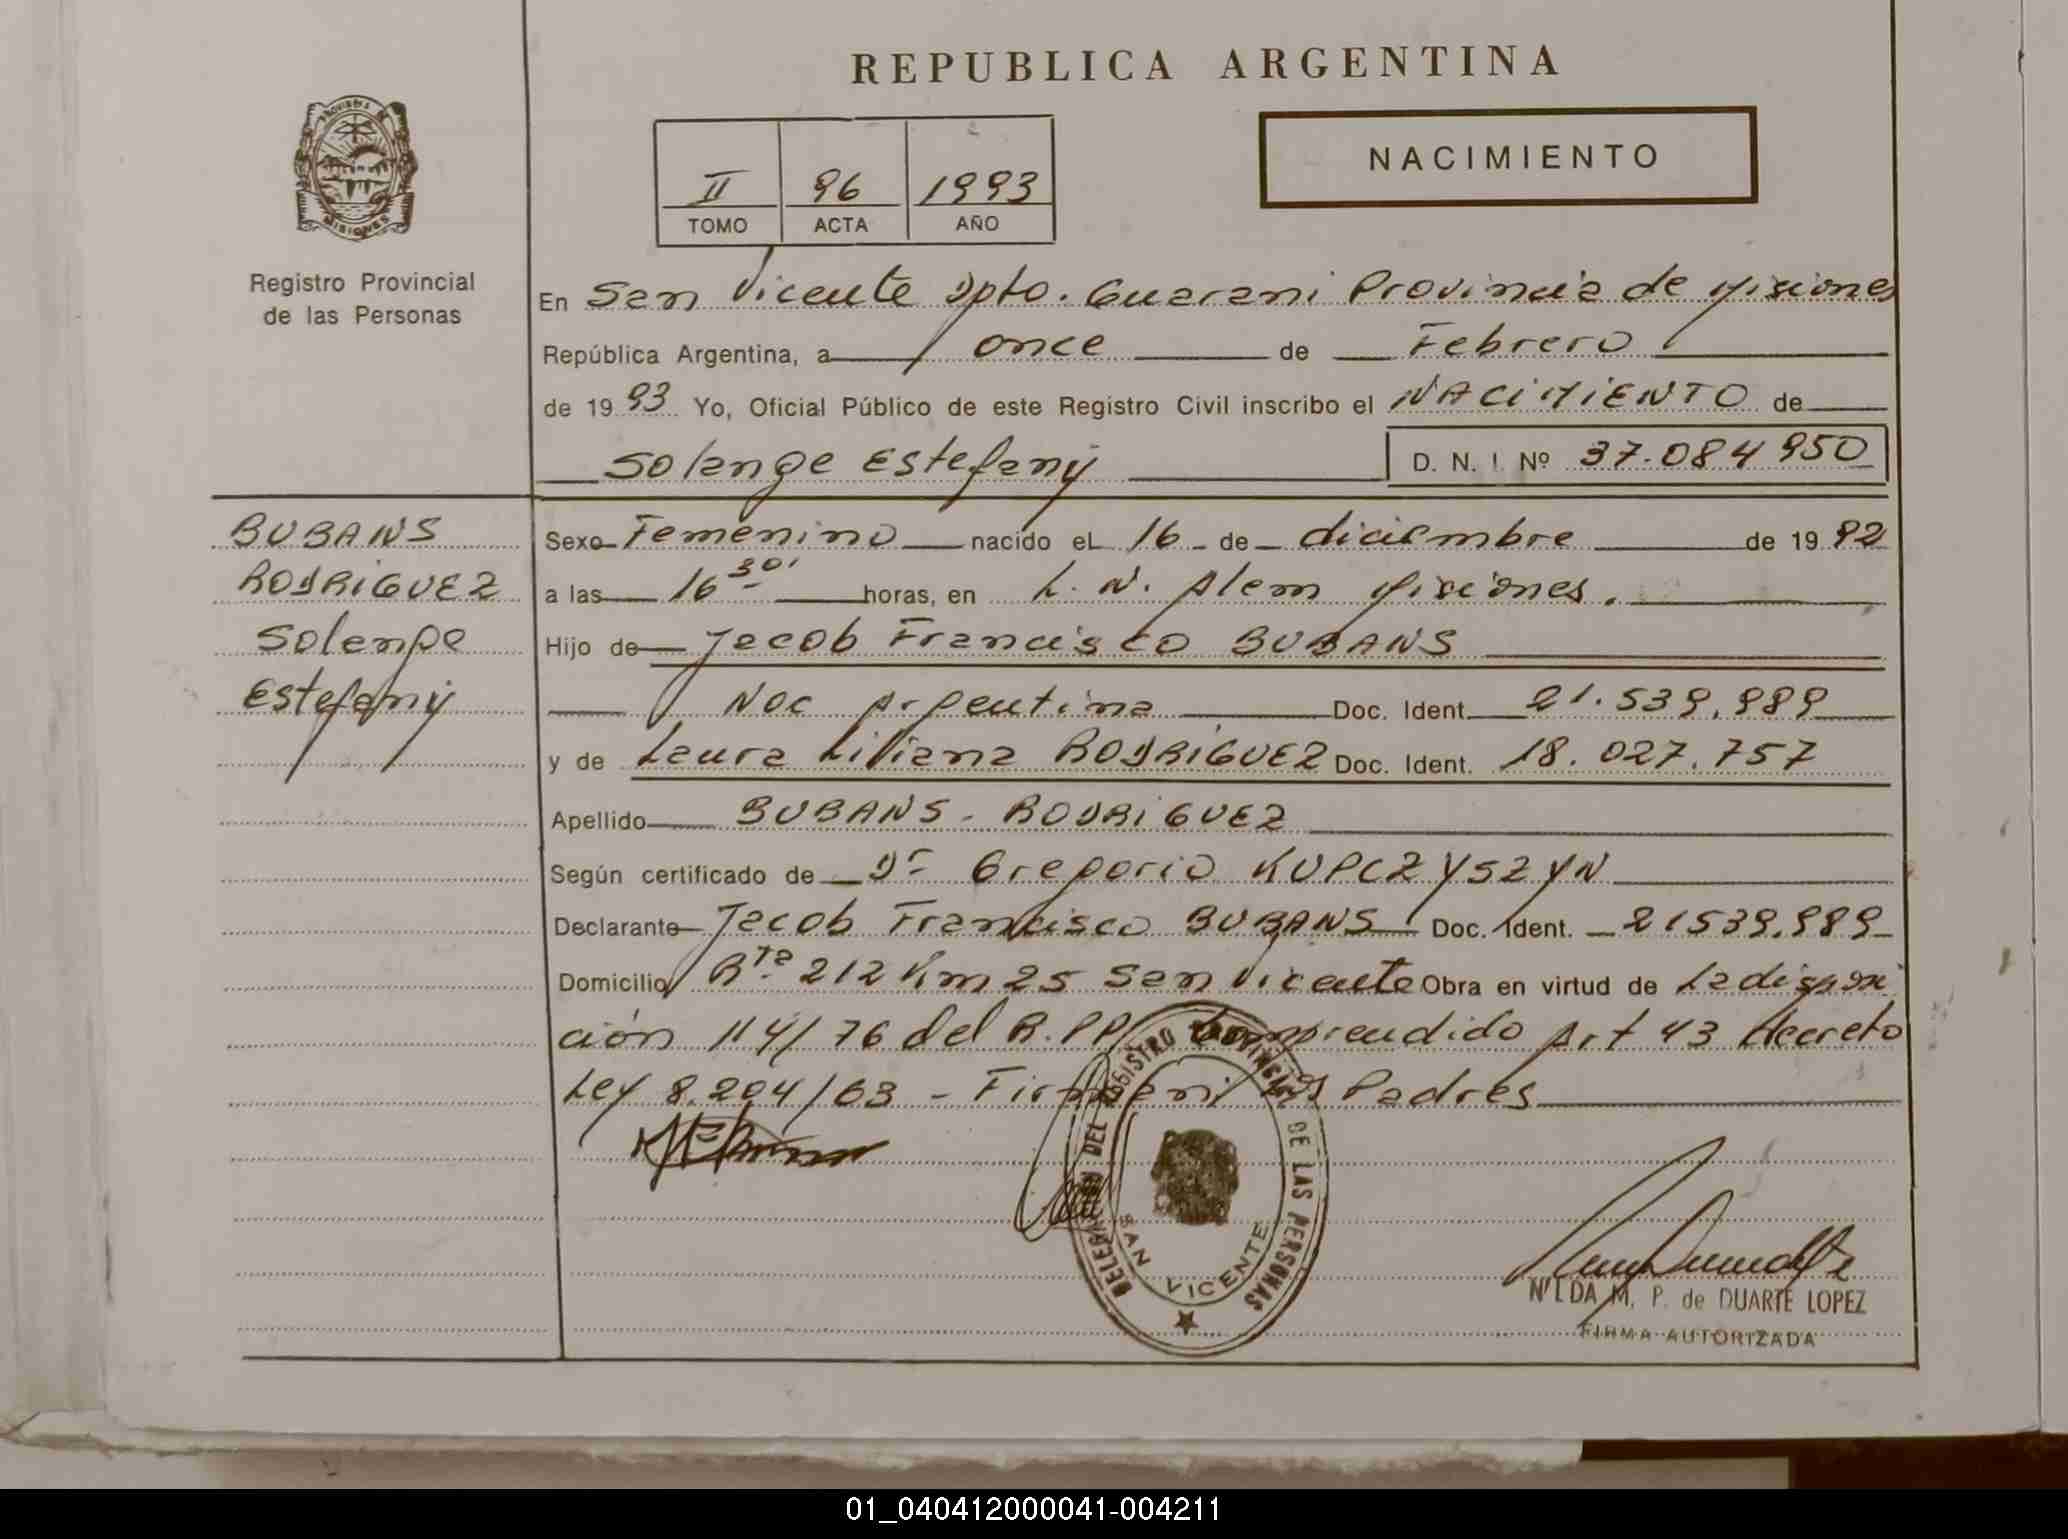 REPUBLICA ARGENTINA
PROVINCIA DE MISIONES
II 96 1993
TOMO ACTA AÑO
NACIMIENTO
Registro Provincial
de las Personas
En San Vicente Dpto. Guarani Provincia de Misiones
República Argentina, a once de Febrero
de 1993 Yo, Oficial Público de este Registro Civil inscribo el NACIMIENTO de
Solange Estefany D. N. I. Nº 37.084950
BUBANS
RODRIGUEZ
Solange
Estefany
Sexo Femenino nacido el 16 de diciembre de 1992
a las 16 30' horas, en L. N. Alem Misiones.
Hijo de Jacob Francisco BUBANS
Nac Argentina Doc. Ident. 21.539.989
y de Laura Liliana RODRIGUEZ Doc. Ident. 18.027.757
Apellido BUBANS - RODRIGUEZ
Según certificado de Dr Gregorio KUPCZYSZYN
Declarante Jacob Francisco BUBANS Doc. Ident. 21539.989
Domicilio Rta 212 Km 25 San Vicente Obra en virtud de La disposi
ción 114/76 del R.PP. Comprendido Art 43 decreto
Ley 8.204/63 - Firman los Padres
DELEGACION DEL REGISTRO PROVINCIAL DE LAS PERSONAS
SAN VICENTE
NILDA M. P. de DUARTE LOPEZ
FIRMA AUTORIZADA
01_040412000041-004211